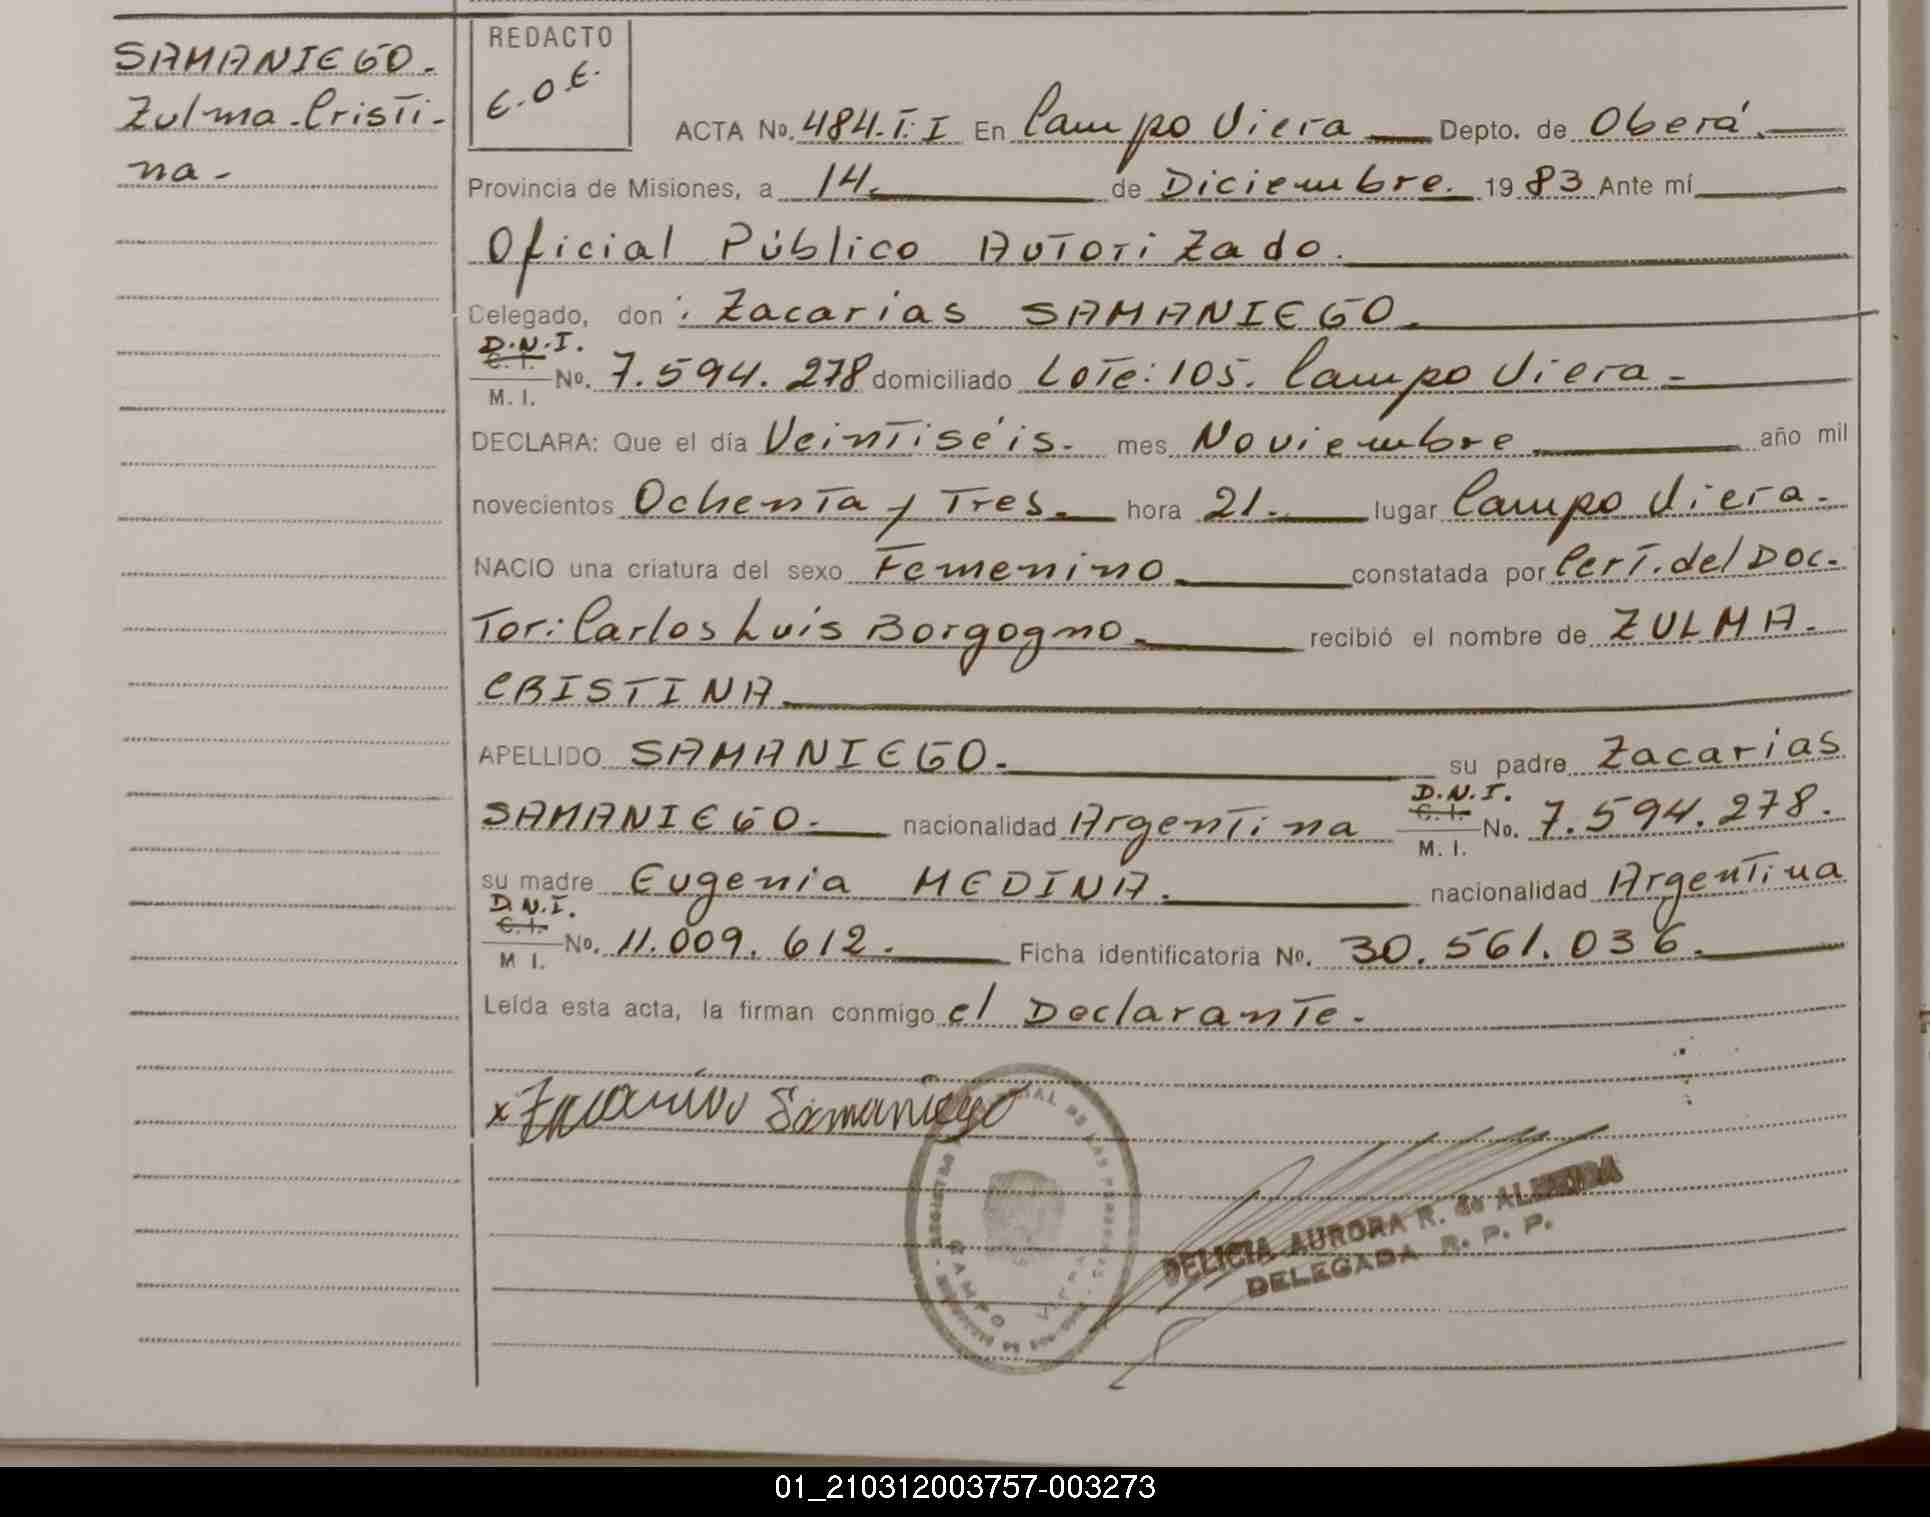 SAMANIEGO.
Zulma Cristi-
na-
REDACTO
E.O.E.
ACTA No. 484.T.I En Campo Viera Depto. de Oberá.
Provincia de Misiones, a 14. de Diciembre. 1983 Ante mí
Oficial Público Autorizado.
Delegado, don: Zacarias SAMANIEGO.
D.N.I.
C.I.
M. I. No. 7.594.278 domiciliado Lote: 105. Campo Viera-
DECLARA: Que el día Veintiséis. mes Noviembre año mil
novecientos Ochenta y Tres. hora 21. lugar Campo Viera.
NACIO una criatura del sexo Femenino constatada por Cert. del Doc-
tor: Carlos Luis Borgogno. recibió el nombre de ZULMA.
CRISTINA
APELLIDO SAMANIEGO. su padre Zacarias
SAMANIEGO. nacionalidad Argentina D.N.I. C.I. M. I. No. 7.594.278.
su madre Eugenia MEDINA. nacionalidad Argentina
D.N.I.
C.I.
M I. No. 11.009.612. Ficha identificatoria No. 30.561.036.
Leída esta acta, la firman conmigo el Declarante.
x Zacarias Samaniego
REGISTRO DE LAS PERSONAS
CAMPO VIERA
DELICIA AURORA R. de ALMEIDA
DELEGADA R. P. P.
01_210312003757-003273